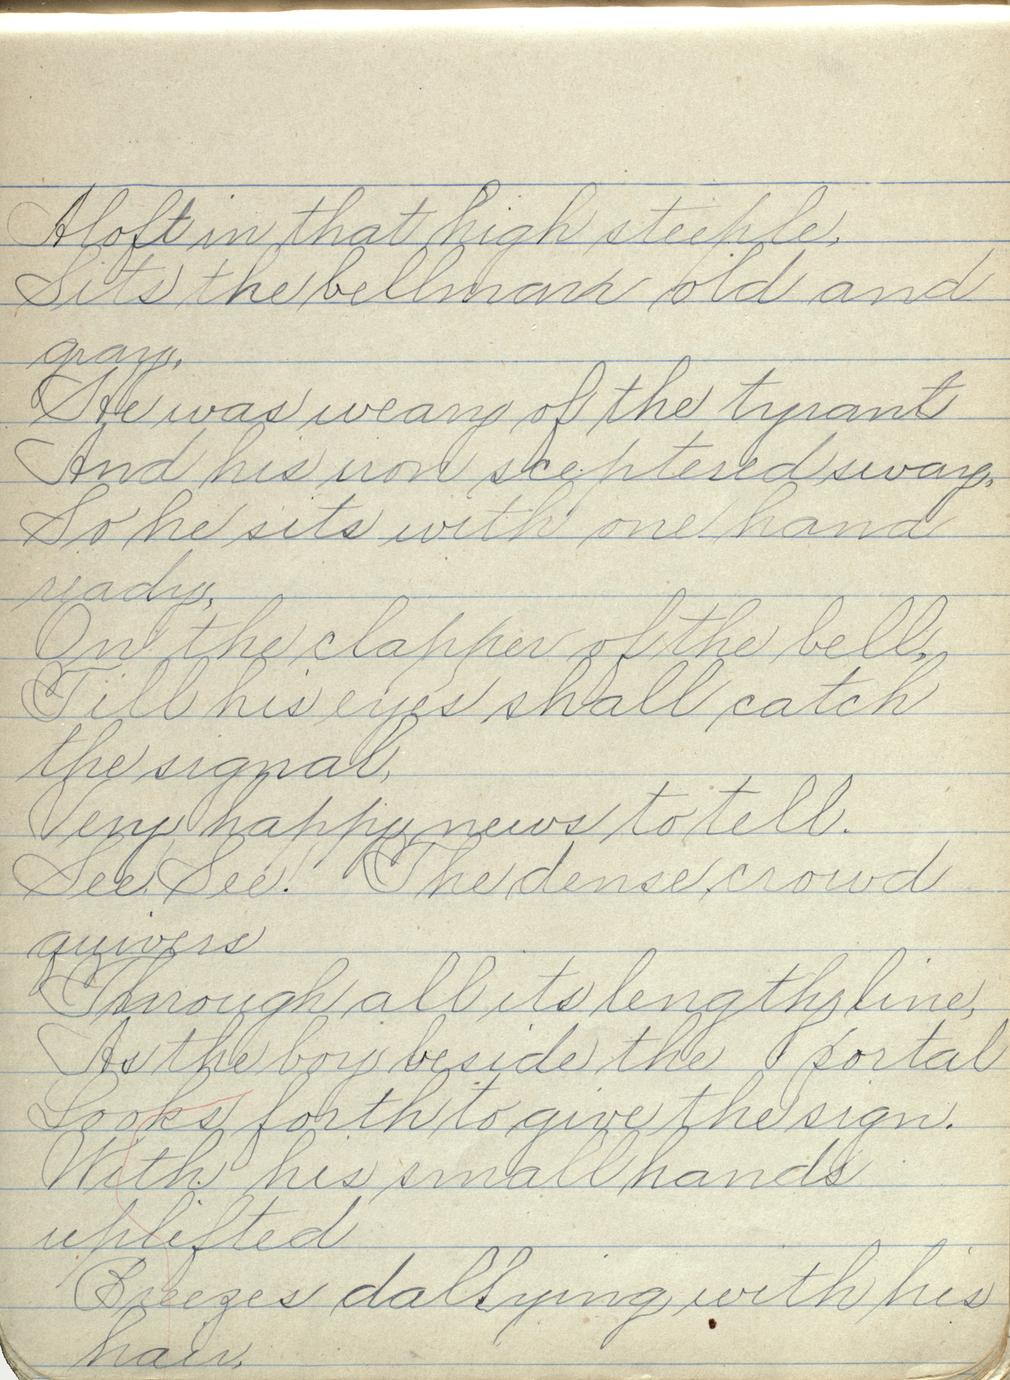 Aloft in that high steeple,
Sits the bellman old and
gray,
He was weary of the tyrant
And his iron sceptered sway,
So he sits with one hand
ready,
On the clapper of the bell,
Till his eyes shall catch
the signal,
Very happy news to tell.
See! See! The dense crowd
quivers
Through all its lengthy line,
As the boy beside the portal
Looks forth to give the sign.
With his small hands
uplifted
Breezes dallying with his
hair,